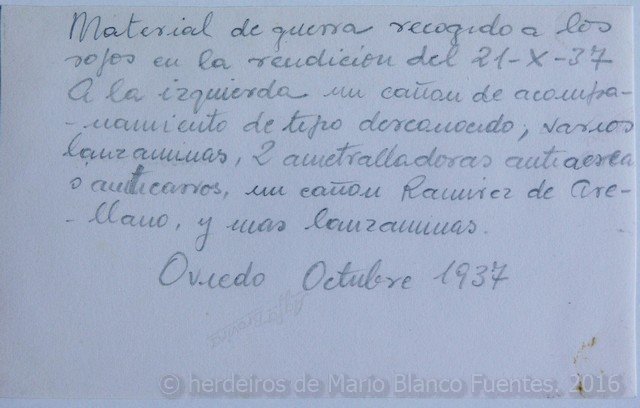 Material de guerra recogido a los
rojos en la rendición del 21-X-37
A la izquierda un cañon de acompa-
-ñamiento de tipo desconocido; varios
lanzaminas, 2 ametralladoras antiaereas
o anticarros, un cañon Ramirez de Are-
-llano, y mas lanzaminas.
Oviedo Octubre 1937
© herdeiros de Mario Blanco Fuentes. 2016